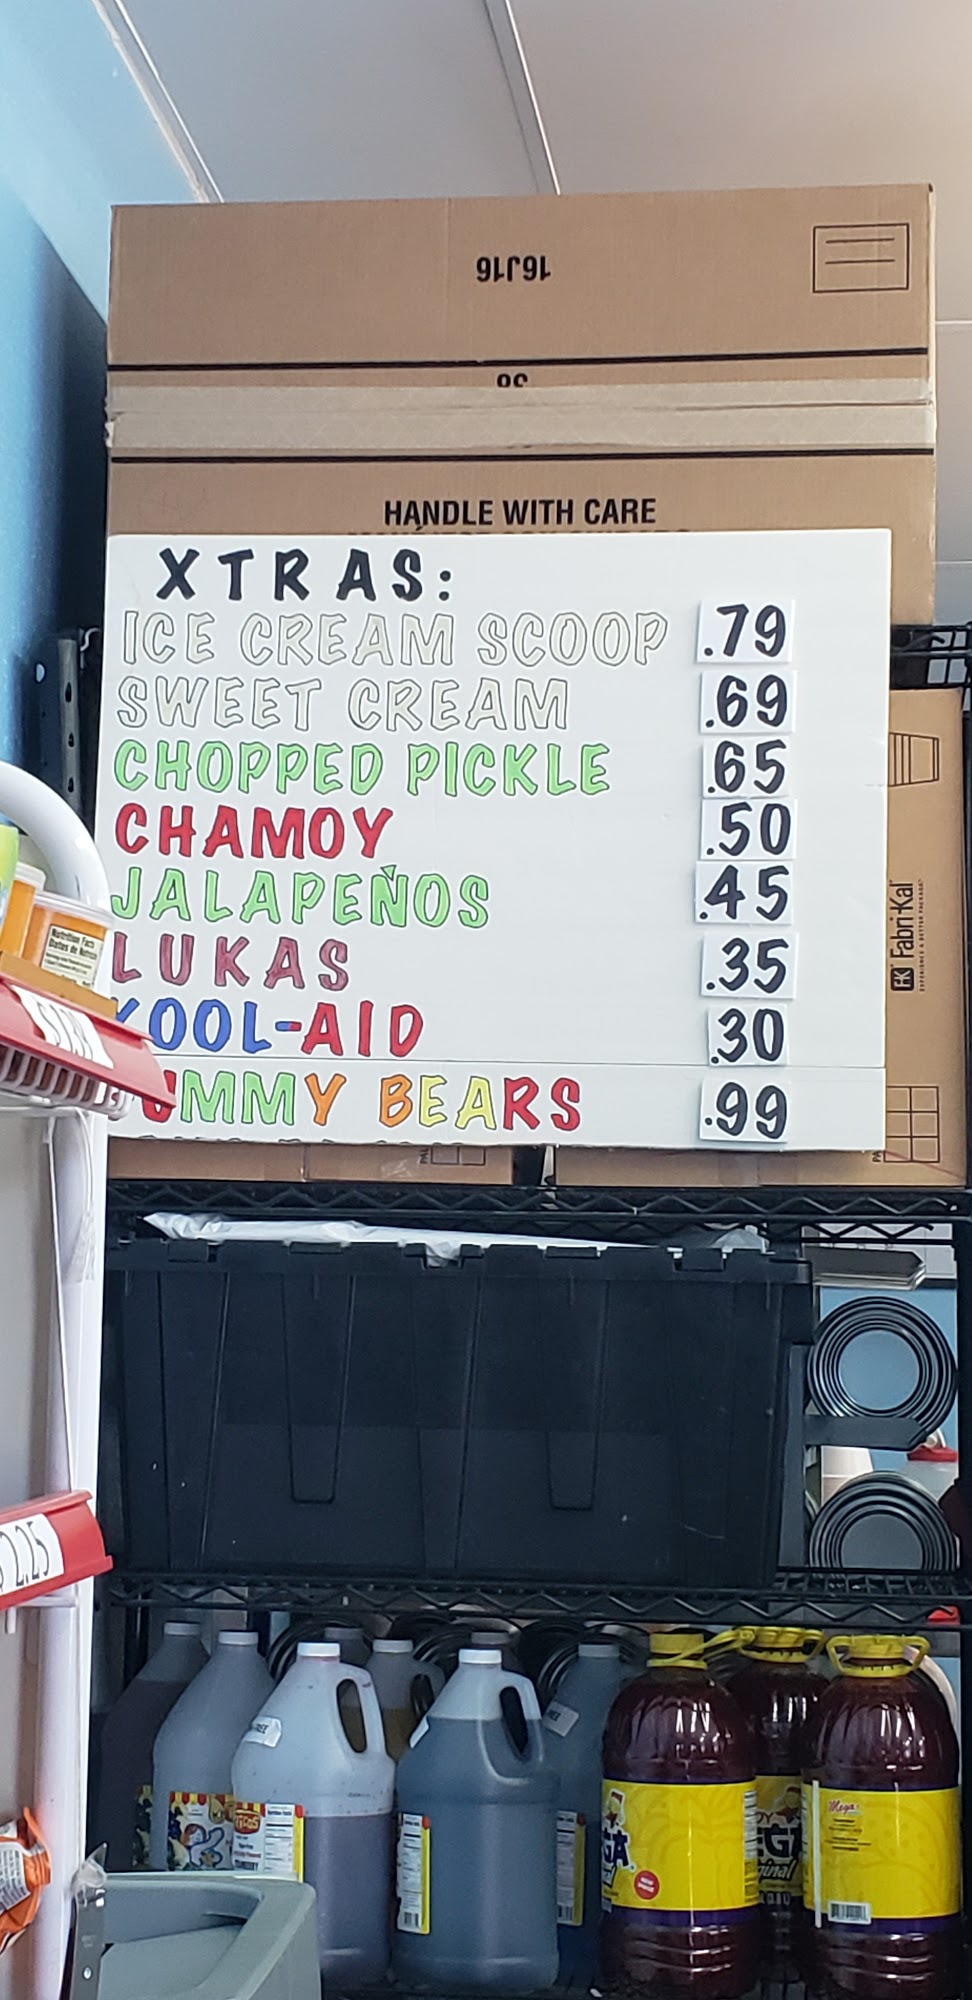 16J16
HANDLE WITH CARE
XTRAS:
ICE CREAM SCOOP .79
SWEET CREAM .69
CHOPPED PICKLE .65
CHAMOY .50
JALAPEÑOS .45
LUKAS .35
KOOL-AID .30
GUMMY BEARS .99
Nutrition Facts
FK Fabri-Kal
2.25
Mega